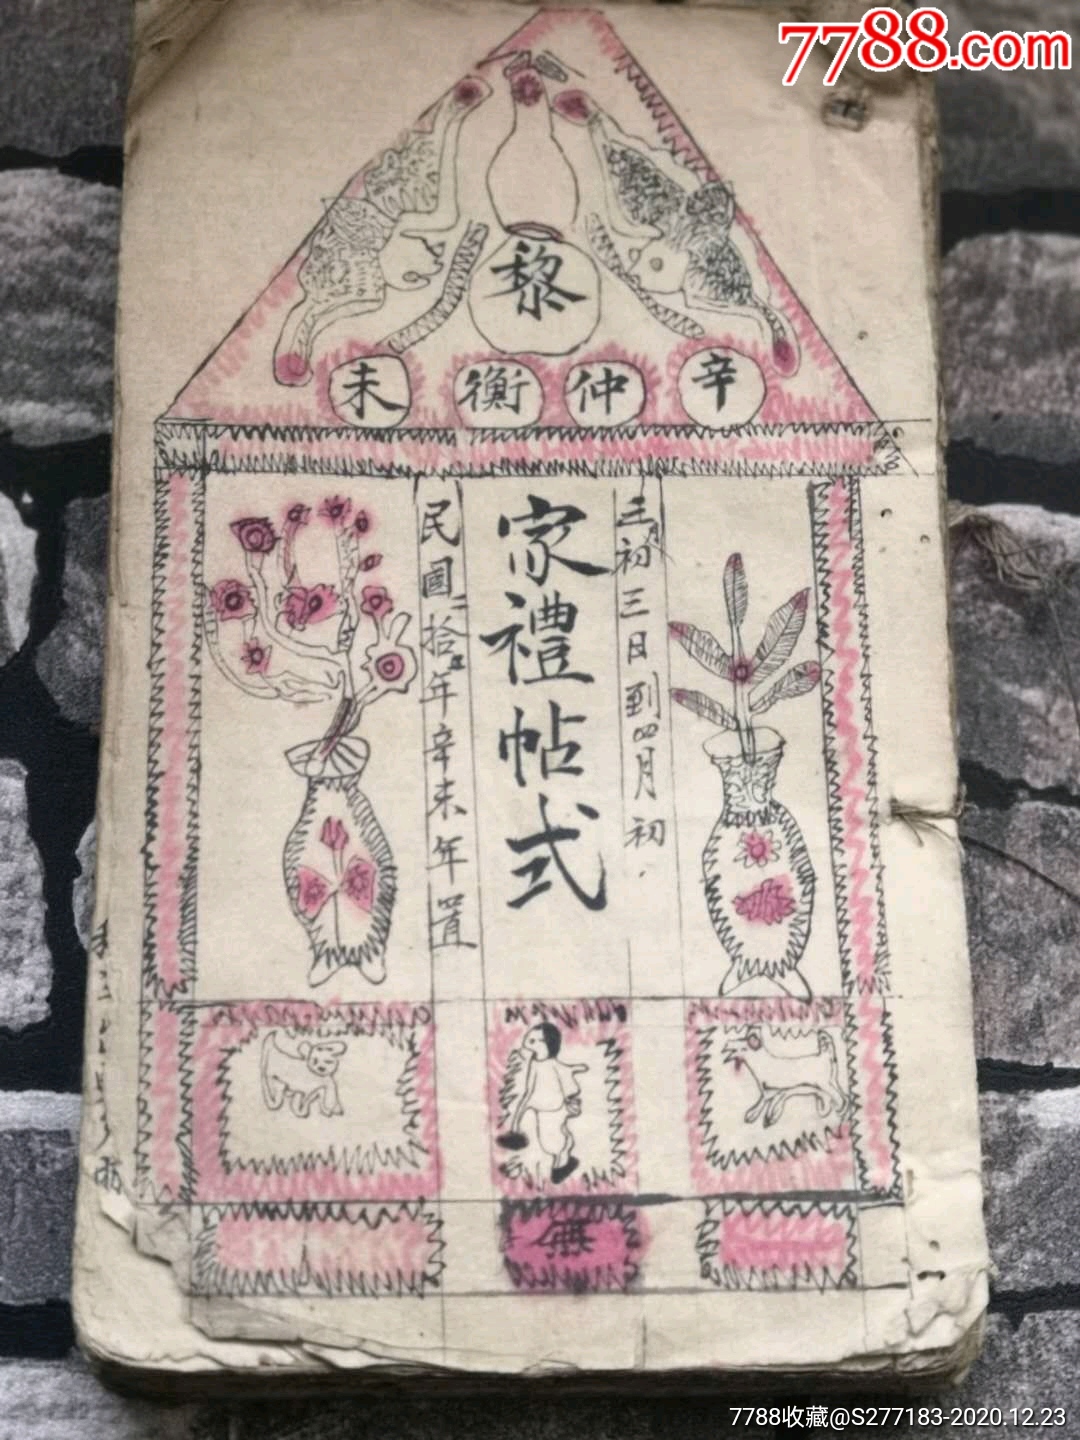 7788.com
黎
辛仲衡未
三月初三日到四月初
家禮帖式
民國二拾年辛未年置
7788收藏@S277183-2020.12.23